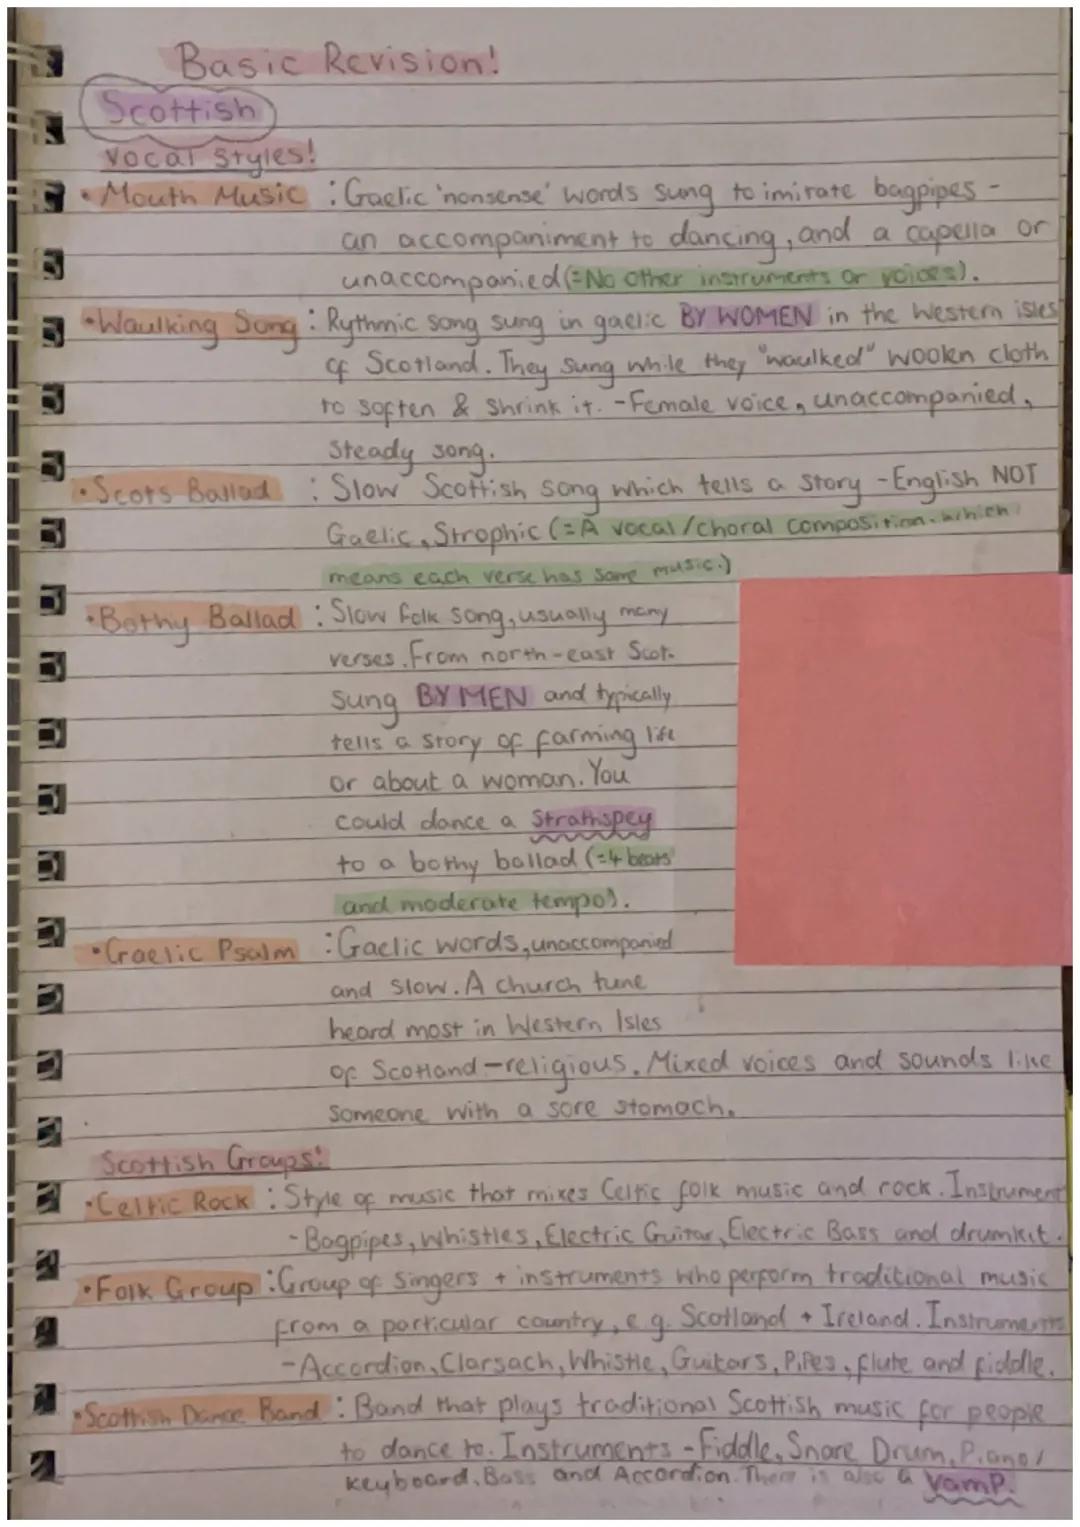 Basic Revision!
Scottish
Vocal Styles!
• Mouth Music : Gaelic 'nonsense' words sung to imitate bagpipes -
an accompaniment to dancing, and a capella or
unaccompanied (=No other instruments or voices).
• Waulking Song : Rythmic song sung in gaelic BY WOMEN in the Western isles
of Scotland. They sung while they "waulked" woolen cloth
to soften & shrink it. - Female voice, unaccompanied,
Steady song.
• Scots Ballad : Slow Scottish song which tells a story - English NOT
Gaelic, Strophic (= A vocal/choral composition which
means each verse has same music.)
• Bothy Ballad : Slow folk song, usually many
verses. From north-east Scot.
Sung BY MEN and typically
tells a story of farming life
or about a woman. You
could dance a Strathspey
to a bothy ballad (=4 beats
and moderate tempo).
• Gaelic Psalm : Gaelic words, unaccompanied
and slow. A church tune
heard most in Western Isles
of Scotland - religious. Mixed voices and sounds like
someone with a sore stomach.
Scottish Groups!
• Celtic Rock : Style of music that mixes Celtic folk music and rock. Instrument
- Bagpipes, Whistles, Electric Guitar, Electric Bass and drumkit.
• Folk Group : Group of singers + instruments who perform traditional music
from a particular country, e.g. Scotland + Ireland. Instruments
- Accordion, Clarsach, Whistle, Guitars, Pipes, flute and fiddle.
• Scottish Dance Band : Band that plays traditional Scottish music for people
to dance to. Instruments - Fiddle, Snare Drum, Piano/
keyboard, Bass and Accordion. There is also a vamp.